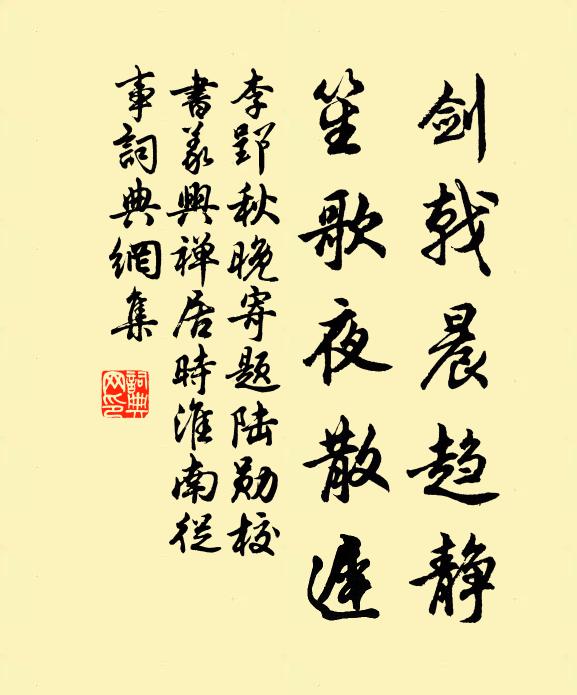 剑戟晨趋静
笙歌夜散遲
李郢秋晚寄题陆勋校
書義興禅居時淮南從
事詞典網集
詞典
网印